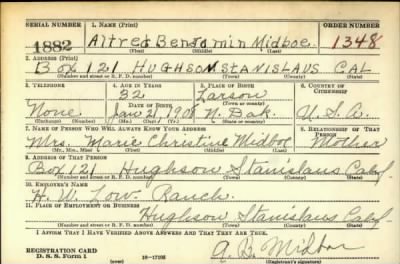 SERIAL NUMBER 1. NAME (Print) ORDER NUMBER
1882 Alfred Benjamin Midboe 1348
(First) (Middle) (Last)
2. ADDRESS (Print)
Box 121 HUGHSON STANISLAUS CAL
(Number and street or R. F. D. number) (Town) (County) (State)
3. TELEPHONE 4. AGE IN YEARS 5. PLACE OF BIRTH 6. COUNTRY OF CITIZENSHIP
32 Larson
DATE OF BIRTH (Town or county)
None Jan 21 1908 N. Dak. U.S.A.
(Exchange) (Number) (Mo.) (Day) (Yr.) (State or country)
7. NAME OF PERSON WHO WILL ALWAYS KNOW YOUR ADDRESS 8. RELATIONSHIP OF THAT PERSON
Mrs. Marie Christine Midboe Mother
(Mr., Mrs., Miss) (First) (Middle) (Last)
9. ADDRESS OF THAT PERSON
Box 121 Hughson Stanislaus Calif
(Number and street or R. F. D. number) (Town) (County) (State)
10. EMPLOYER'S NAME
H. W. Low- Ranch.
11. PLACE OF EMPLOYMENT OR BUSINESS
Hughson Stanislaus Calif
(Number and street or R. F. D. number) (Town) (County) (State)
I AFFIRM THAT I HAVE VERIFIED ABOVE ANSWERS AND THAT THEY ARE TRUE.
REGISTRATION CARD
D. S. S. Form 1 (over) 16-17105 (Registrant's signature)
A. B. Midboe